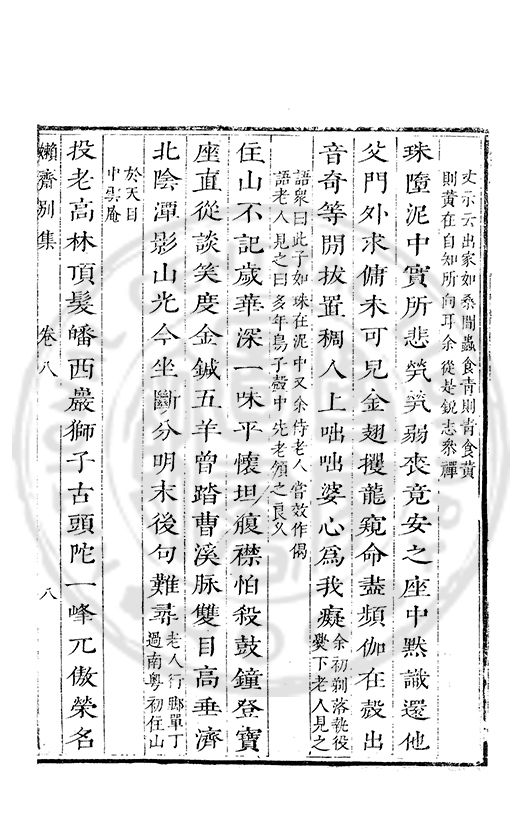 丈示云出家如桑間蟲食青則青食黃
則黃在自知所向耳余從是銳志參禪
珠墮泥中實所悲煢煢弱喪竟安之座中默識還他
父門外求傭未可兒金翅攫龍窺命盡頻伽在殼出
音奇等閒拔置稠人上咄咄婆心為我癡
余初剃落執役
爨下老人見之
語眾曰此子如珠在泥中又余侍老人嘗效作偈
語老人見之曰多年鳥子殼中先老頷之良久
住山不記歲華深一味平懷坦瘕襟怕殺鼓鐘登寶
座直從談笑度金鍼五羊曾踏曹溪脉雙目高垂濟
北陰潭影山光今坐斷分明末後句難尋
老人行腳單丁
過南粤初住山
於天目
中雲庵
投老高林頂髮皤西巖獅子古頭陀一峰兀傲榮名
嬾齋別集
卷八
八